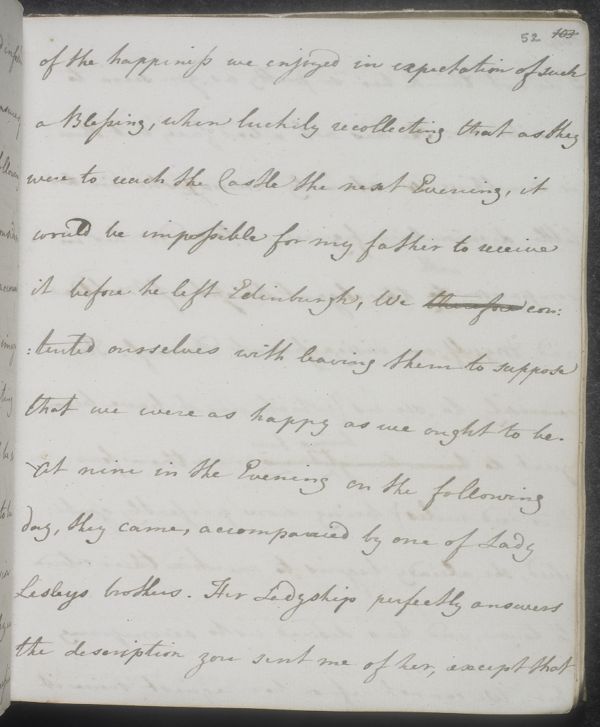 52 103
of the happiness we enjoyed in expectation of such
a Blessing, when luckily recollecting that as they
were to reach the Castle the next Evening, it
would be impossible for my father to receive
it before he left Edinburgh, We therefore con:
:tented ourselves with leaving them to suppose
that we were as happy as we ought to be.
At nine in the Evening on the following
day, they came, accompanied by one of Lady
Lesleys brothers. Her Ladyship perfectly answers
the description you sent me of her, except that